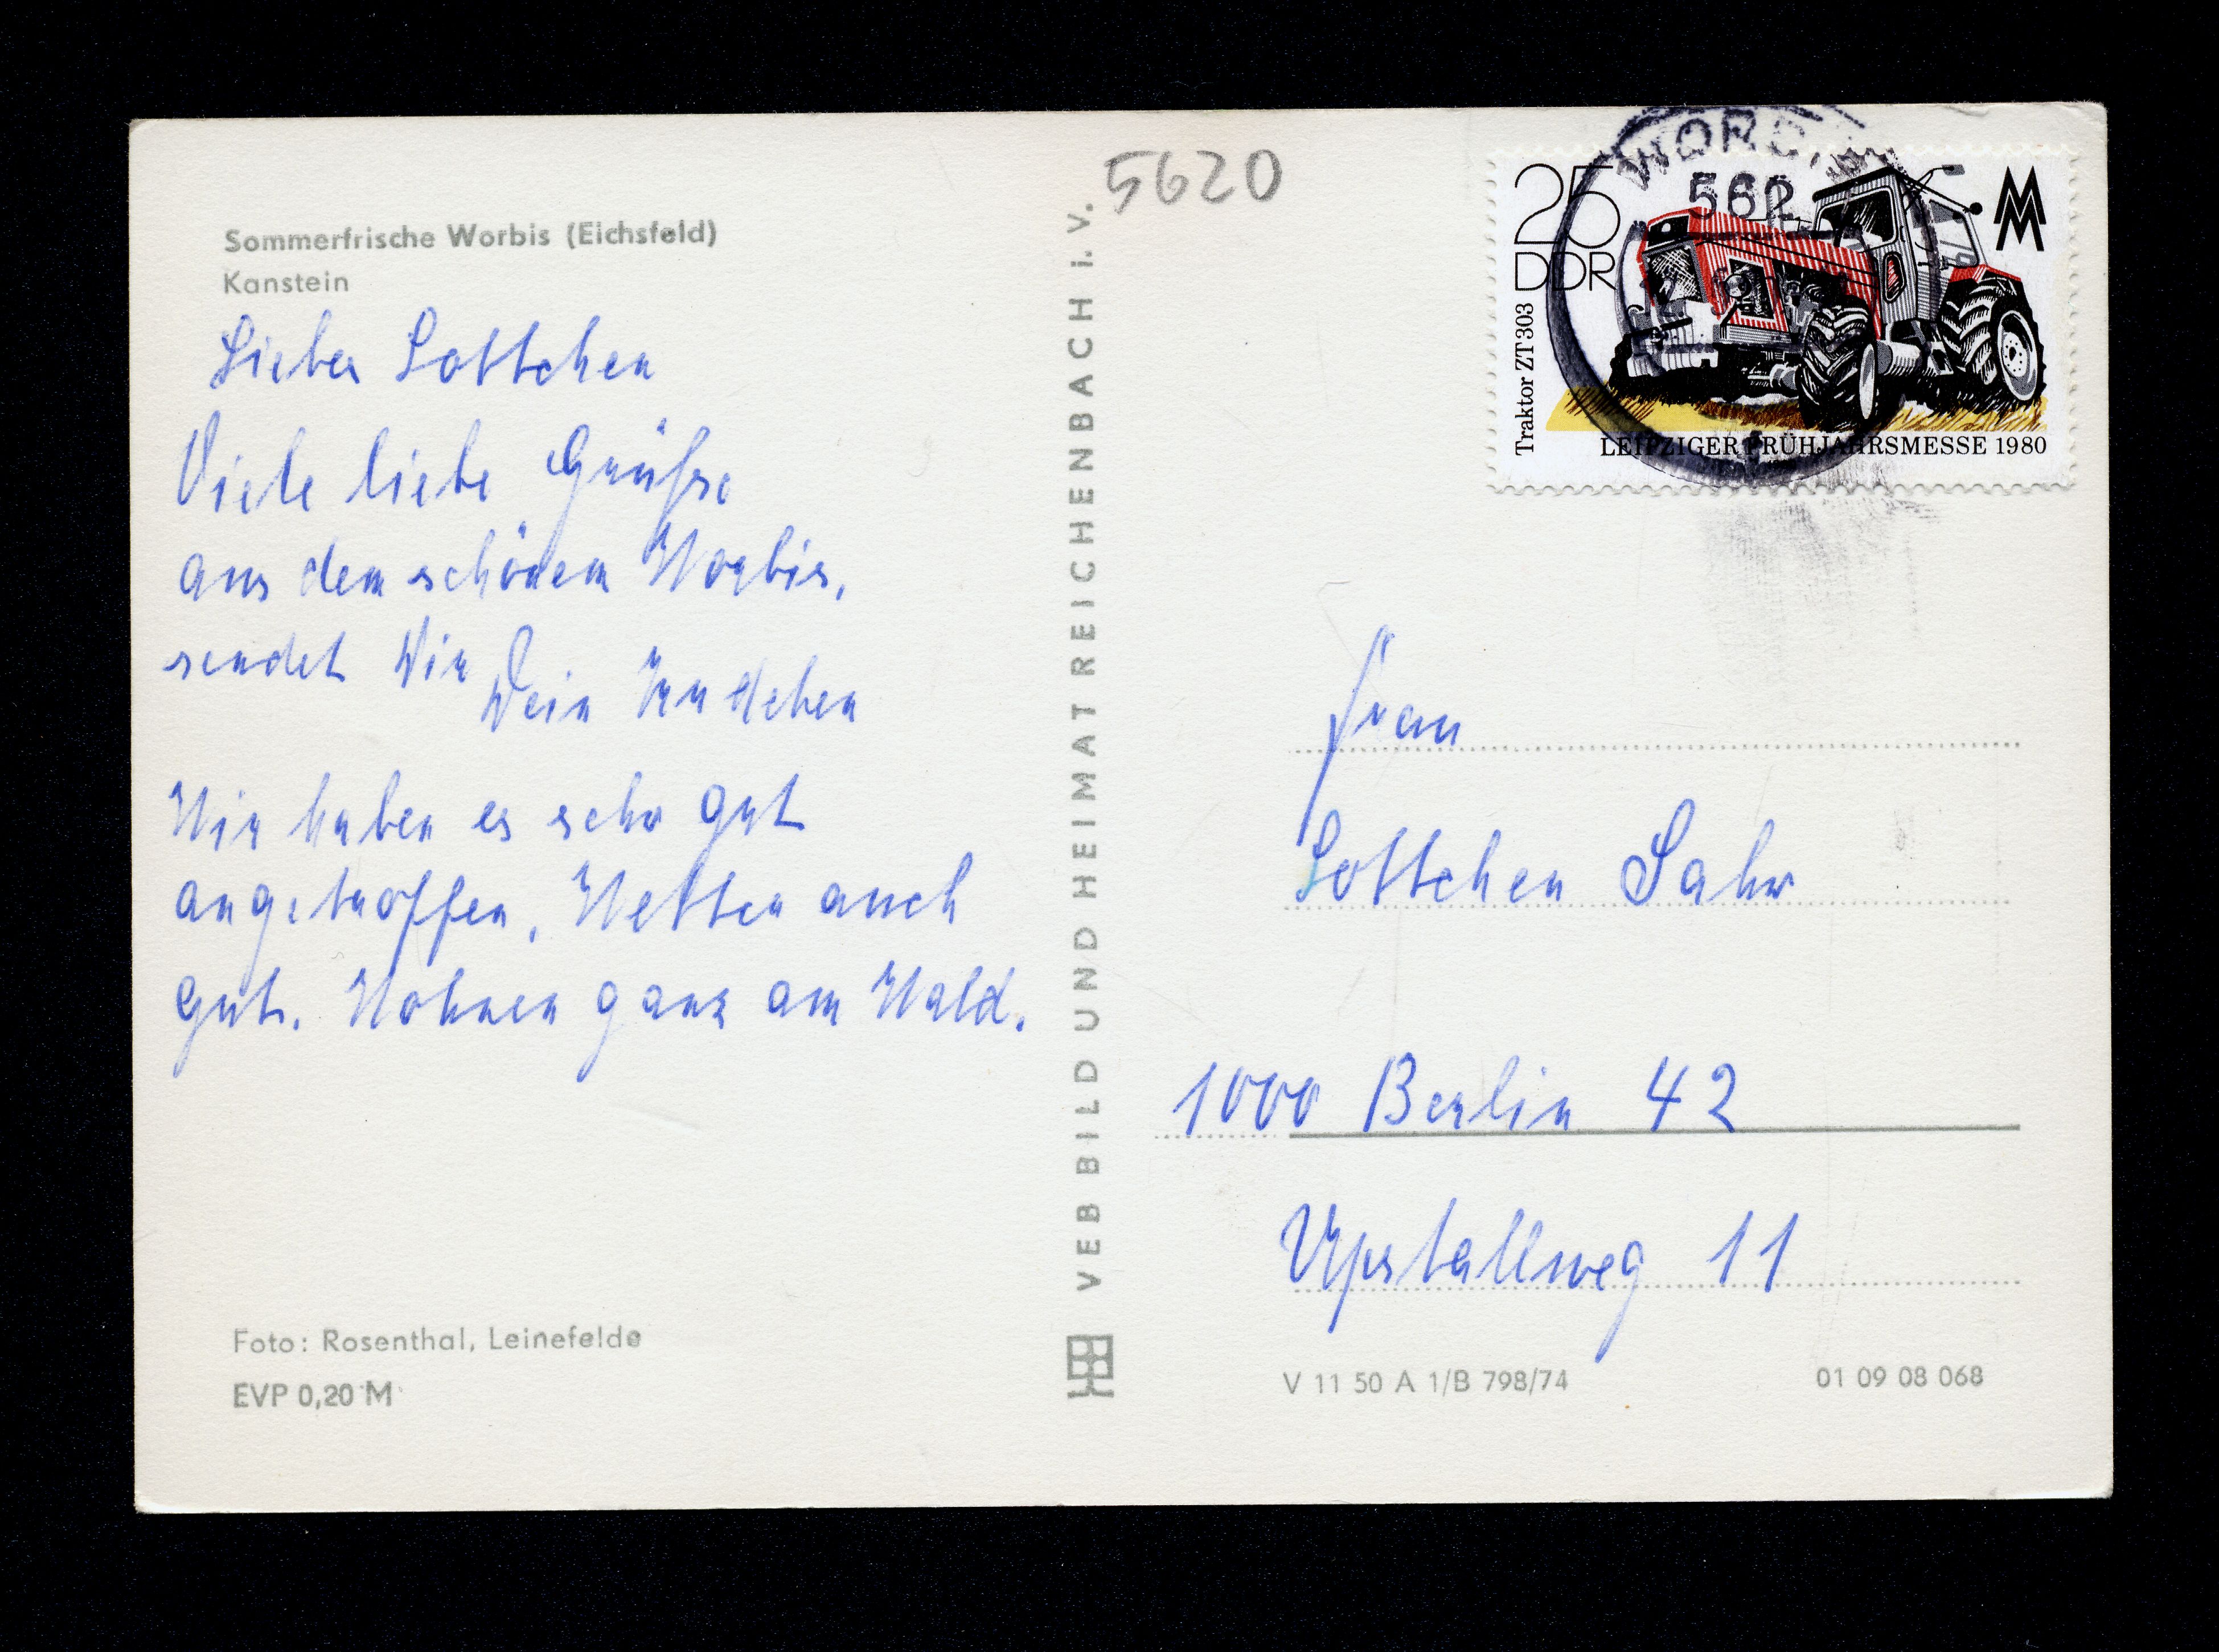 Sommerfrische Worbis (Eichsfeld)
Kanstein
Liebes Lottchen
Viele liebe Grüße
aus dem schönem Worbis,
sendet Dir
Dein
Wir haben es sehr gut
angetroffen, Wetter auch
gut. Wohnen ganz am Wald.
Foto: Rosenthal, Leinefelde
EVP 0,20 M
VEB BILD UND HEIMAT REICHENBACH i. V.
5620
WORBIS
562
25
DDR
MM
Traktor ZT 303
LEIPZIGER FRÜHJAHRSMESSE 1980
Frau
Lottchen Sahr
1000 Berlin 42
Upstallweg 11
V 11 50 A 1/B 798/74
01 09 08 068